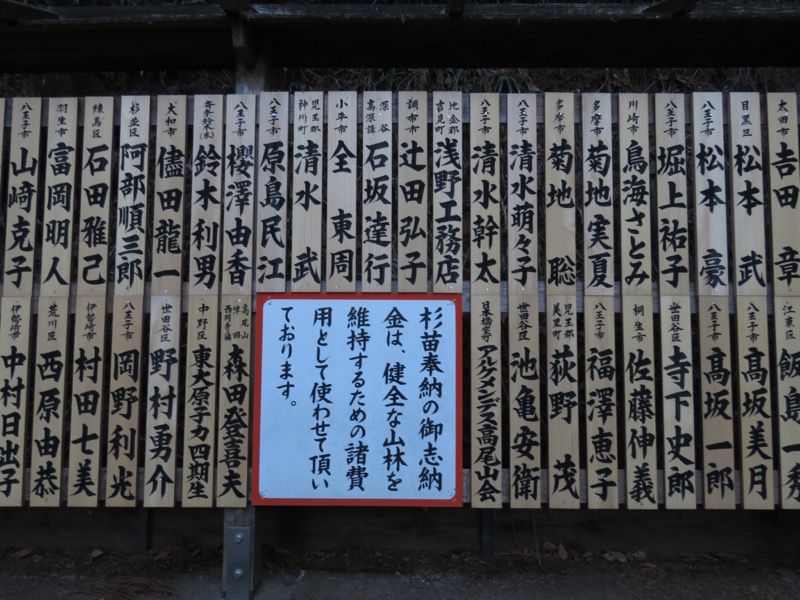 太田市 吉田 章
目黒区 松本 武
八王子市 松本 豪
八王子市 堀上祐子
川崎市 鳥海さとみ
多摩市 菊地実夏
多摩市 菊地 聡
八王子市 清水萌々子
八王子市 清水幹太
比企郡吉見町 浅野工務店
調布市 辻田弘子
深谷 高深講 石坂達行
小平市 全 東周
児玉郡神川町 清水 武
八王子市 原島民江
八王子市 櫻澤由香
寄居鈴木(株) 鈴木利男
大和市 儘田龍一
杉並区 阿部順三郎
練馬区 石田雅己
羽生市 富岡明人
八王子市 山﨑克子
江東区 飯島一秀
八王子市 髙坂美月
八王子市 髙坂一郎
世田谷区 寺下史郎
桐生市 佐藤伸義
八王子市 福澤恵子
児玉郡美里町 荻野 茂
世田谷区 池亀安衛
日本橋室町 アルケメンデス高尾山会
杉苗奉納の御志納
金は、健全な山林を
維持するための諸費
用として使わせて頂い
ております。
森田登喜夫
中野区 東大原子力四期生
世田谷区 野村勇介
八王子市 岡野利光
伊勢崎市 村田七美
荒川区 西原由恭
伊勢崎市 中村日出